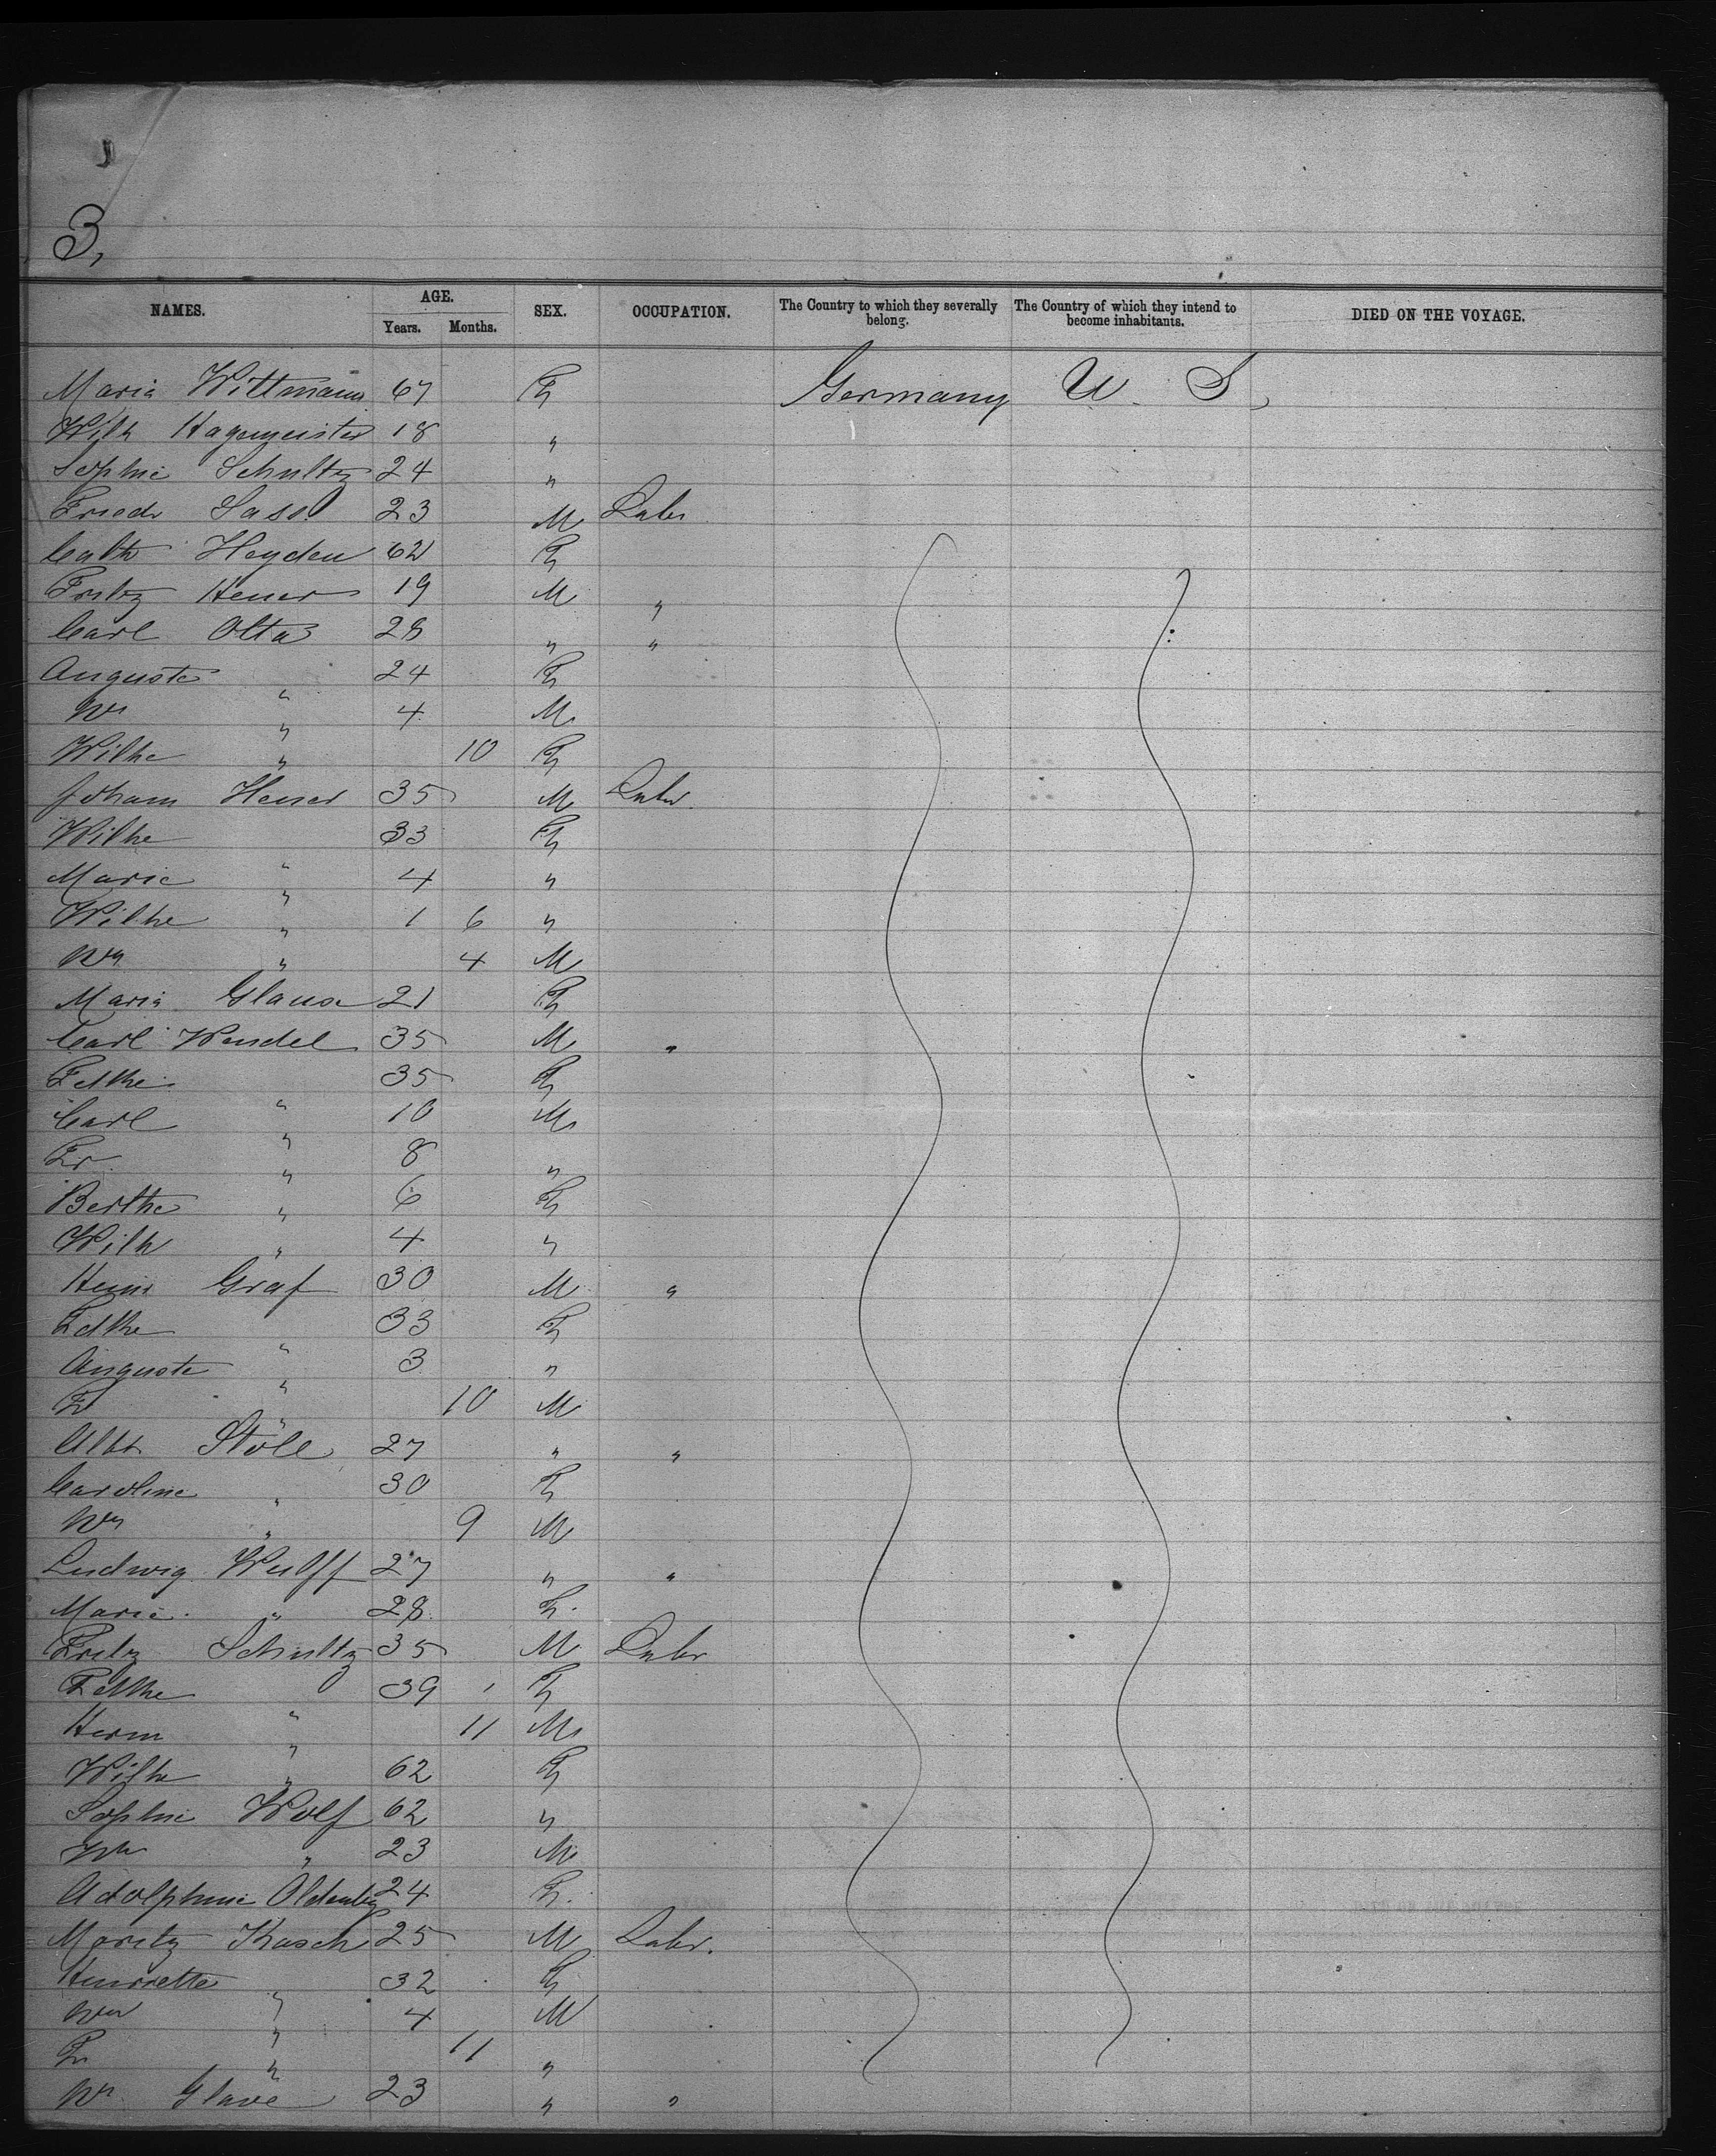 3,
NAMES. AGE. SEX. OCCUPATION. The Country to which they severally belong. The Country of which they intend to become inhabitants. DIED ON THE VOYAGE.
Years. Months.
Maria Wittmann 67 F Germany U. S.
Wilh Hagemeister 18 "
Sophie Schultz 24 "
Friedr Sass 23 M Labr
Cath Heyden 62 F
Fritz Heuer 19 M "
Carl Olta 28 " "
Auguste " 24 F
Wm " 4 M
Wilhe " 10 F
Johann Heuer 35 M Labr
Wilhe " 33 F
Marie " 4 "
Wilhe " 1 6 "
Wm " 4 M
Maria 21 F
Carl Wendel 35 M "
Fdke " 35 F
Carl " 10 M
Fr " 8 "
Berthe " 6 F
Wilh " 4 "
Heinr Graf 30 M "
Fdke " 33 F
Auguste " 3 "
F " 10 M
Albt Stöle 27 " "
Caroline " 30 F
Wm " 9 M
Ludwig Wulff 27 " "
Marie " 28 F.
Fritz Schultz 35 M Labr
Fdke " 39 F
Herm " 11 M
Wilhe " 62 F
Sophie Wolf 62 "
Wm " 23 M
Adolphine Oldenbg 24 F.
Moritz Kasch 25 M Labr.
Henriette " 32 F
Wm " 4 M
Fr " 11 "
Wm Glave 23 " "